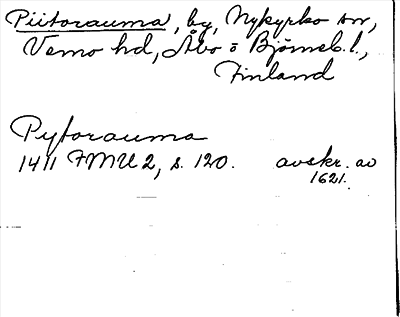 Piitorauma, by, Nykyrko sn,
Vemo hd, Åbo o Björneb. l.,
Finland
Pytorauma
1411 FMU 2, s. 120. avskr. av
1621.